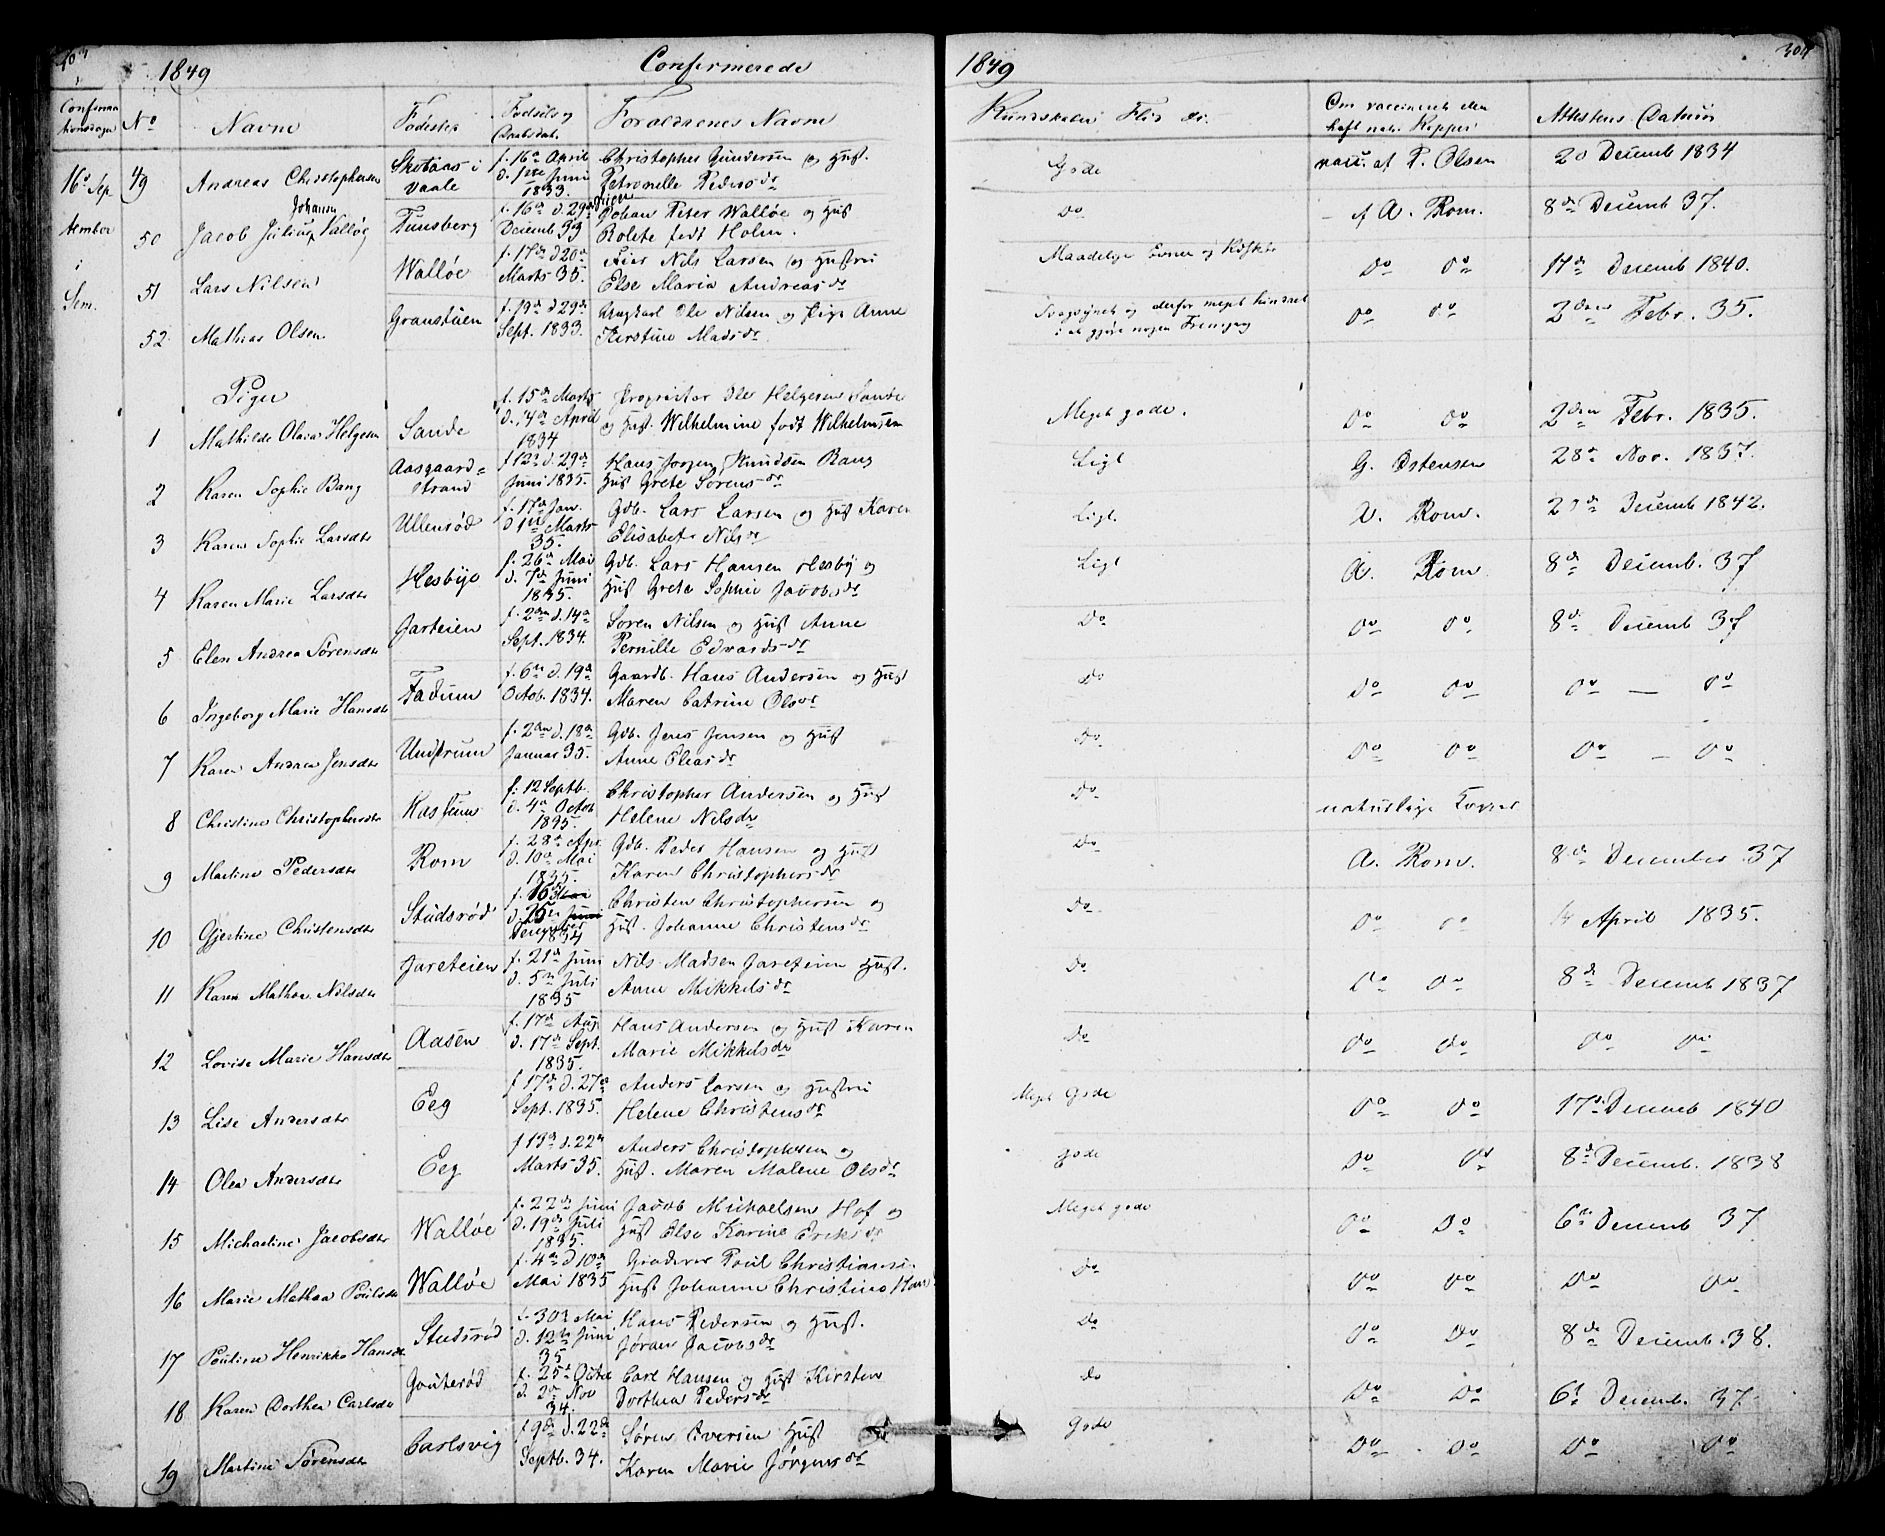 1849 Confirmerede 1849 304
Confirmationsdagen No Navne Fødested Fødsels og Daabsdat. Forældrenes Navne Kundskaber, Flid &c. Om vaccineret eller haft nat. Kopper Attestens Datum
16de September i Sem.
49 Andreas Christophersen Skotaas i Vaale f. 16de April d. 1ste Juni 1833. Christopher Gundersen og Hust. Petronelle Pedersdr Gode vacc. af P. Olsen 20 Decemb 1834
50 Jacob Julius Johansen Walløe Tunsberg f. 16de d. 29de Decemb 33 Johan Peter Walløe og Hust Rolete født Holm. Do - af A. Rom. 8de Decemb 37.
51 Lars Nilsen Walløe f. 17de d 20de Marts 35. Nils Larsen og Hustru Else Maria Andreasdr Maadelige Evner og Kdskbr Do Do 17de Decemb 1840.
52. Mathias Olsen Granstuen f. 19de d 29de Sept. 1833. Ungkarl Ole Nilsen og Pige Anne Kirstine Madsdr Svagsynet og derfor meget hindret i at gjøre nogen Fremgang Do Do 2den Febr. 35.
Piger
1 Mathilde Olava Helgesen Sande f. 15de Marts d. 4de April 1834 Proprietær Ole Helgesen Sande og Hust. Wilhelmine født Wilhelmsen Meget gode. Do Do 2den Febr. 1835.
2 Karen Sophie Bang Aasgaardstrand f 12te d. 29de Juni 1835. Hans Jørgen Knudsen Bang Hust Grete Sørensdr Ligl G. Østensen 28de Nov. 1837.
3 Karen Sophie Larsdtr Ullensrød f. 17de Jan. d 1ste Marts 35. Gdb. Lars Larsen og Hust Karen Elisabeth Nilsdr Ligl. A. Rom. Decemb 1842.
4 Karen Marie Larsdtr Hesbye f. 26de Mai d. 7de Juni 1835. Gdb. Lars Hansen Hesby og Hust Grete Sophie Jacobsdr Ligl A. Rom 8de Decemb. 37
5 Elen Andrea Sørensdtr Garteien f. 2den d. 14de Sept. 1834. Søren Nilsen og Hust Anne Pernille Edvardsdr Do Do Do 8de Decemb 37
6 Ingeborg Marie Hansdtr Fadum f. 6te d. 19de Octob. 1834. Gaardb. Hans Andersen og Hust Maren Catrine Olsdr Do Do Do Do — Do
7 Karen Andrea Jensdtr Undrum f. 2den d. 18de Januar 35. Gdb. Jens Jensen og Hust Anne Eliasdr Do. Do Do Do — Do
8 Christine Christophersdtr f. 12 Septb. d. 4de Octob 1835. Christopher Andersen og Hust Helene Nilsdr Do. naturlige Kopper
9 Martine Pedersdtr Rom f. 28de Apr. d. 10de Mai 1835. Gdb. Peder Hansen og Hust Karen Christophersdr Do A. Rom. 8de December 37
10 Gjertine Christensdtr Studsrød f. 16 d. 25de 1834 Christen Christophersen og Hust. Johanne Christensdr Do. Do Do 14 April 1835.
11 Karen Mathea Nilsdtr Jareteien f. 21de Juni d. 5te Juli 1835 Nils Madsen Jareteien Hust. Anne Mikkelsdr Do Do Do. 8de Decemb 1837
12 Lovise Marie Hansdtr Aasen f. 17de Aug. d. 17de Sept. 1835. Hans Andersen og Hust Karen Marie Mikkelsdr Do Do Do Do Do
13 Lise Andersdtr Eeg f 17de d. 27de Sept. 1835. Anders Larsen og Hustru Helene Christensdr Meget Gode Do Do 17de Decemb 1840
14 Olea Andersdtr Eeg f 13de d. 22de Marts 35. Anders Christophersen og Hust. Maren Malene Olsdr gode Do Do 8de Decemb. 1838
15 Michaeline Jacobsdtr Walløe f. 22de Juni d. 19de Juli 1835. Jacob Michaelsen Hof og Hust Else Karine Eriksdr Meget gode Do Do 6te Decemb 37
16 Marie Mathea Poulsdtr Walløe f. 4de d 10de Mai 1835 Poul Christiansen Hust Johanne Christine Do Do Do Do Do
17 Pouline Henrikke Hansdtr Studsrød f. 30te Mai d. 12te Juni 35 Hans Pedersen og Hust. Jøran Jacobsdr Do Do Do 8de Decemb. 38.
18 Karen Dorthea Carlsdtr Gouterød f. 25de Octob d. 2den Nov 34. Carl Hansen og Hust Kirsten Dorthea Pedersdr do Do Do 6te Decemb. 37
19 Martine Sørensdtr Carlsvig f. 9de d. 22de Septb. 34. Søren Iversen Hust Karen Marie Jørgensdr Gode Do Do Do Do